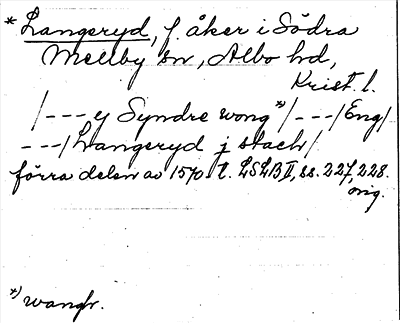 * Langeryd, f. åker i Södra
Mellby sn, Albo hd,
Krist. l.
/---ey Syndre wong*)/---/Eng/
---/Langeryd j stach/.
förra delen av 1570-t. LSLB II, ss. 227, 228.
orig.
*) wangr.